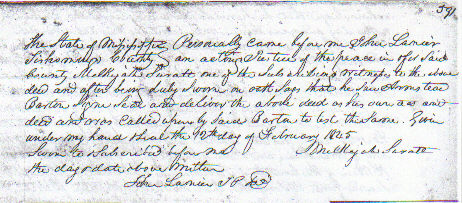 591
The State of Mississippi Personally came before me John Lanier
Tishomingo County an acting Justice of the peace in & for Said
County Melkijah Suratt one of the Subscribing Witnesses to the above
deed and after being duly sworn on oath Says that he Saw
Barton Signe Seal and deliver the above deed as his own act and
deed and was called upon by Said Barton to test the Same. Given
under my hand & Seal the 12th day of February 1845
Sworn to & Subscribed before me Melkijah Suratt
the day & date above Written
John Lanier J P